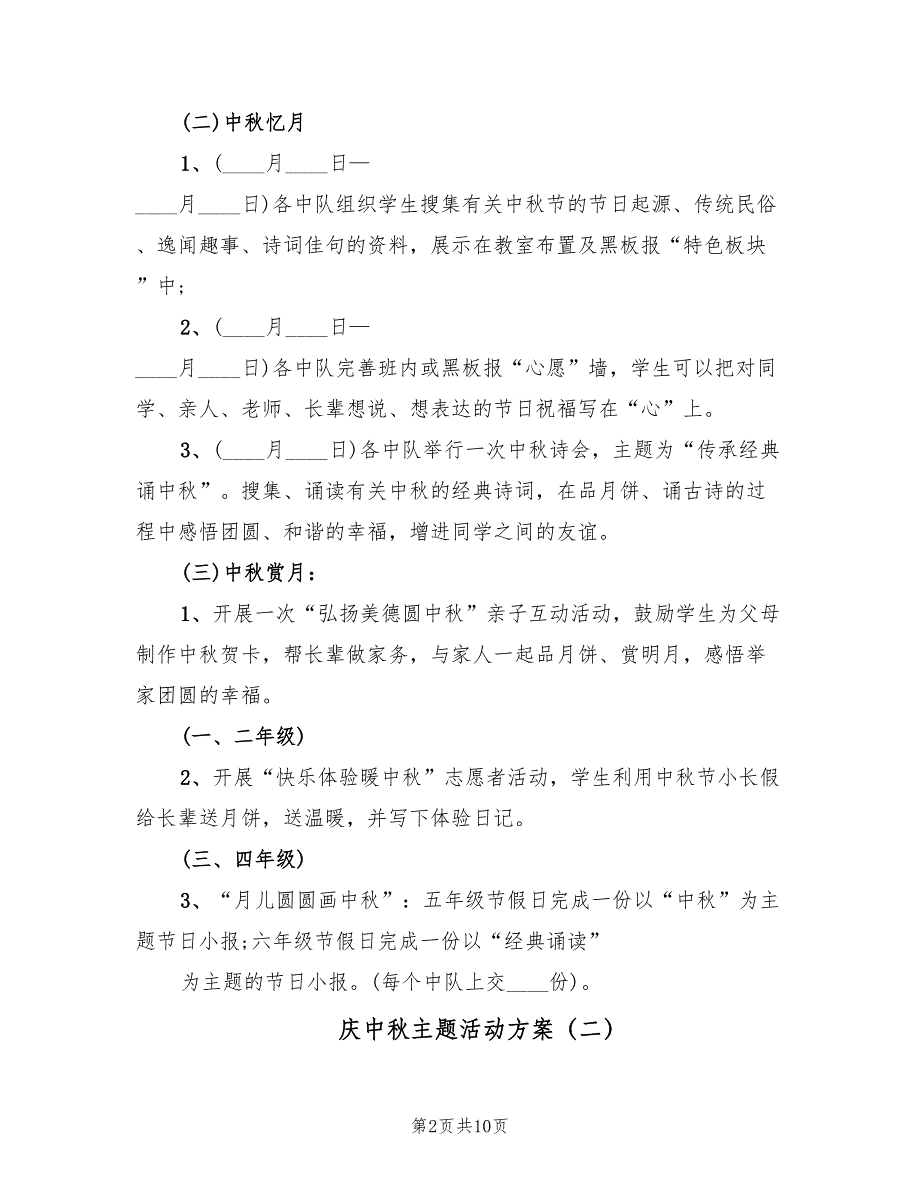 (二)中秋忆月
1、(____月____日—
____月____日)各中队组织学生搜集有关中秋节的节日起源、传统民俗
、逸闻趣事、诗词佳句的资料，展示在教室布置及黑板报“特色板块
”中;
2、(____月____日—
____月____日)各中队完善班内或黑板报“心愿”墙，学生可以把对同
学、亲人、老师、长辈想说、想表达的节日祝福写在“心”上。
3、(____月____日)各中队举行一次中秋诗会，主题为“传承经典
诵中秋”。搜集、诵读有关中秋的经典诗词，在品月饼、诵古诗的过
程中感悟团圆、和谐的幸福，增进同学之间的友谊。
(三)中秋赏月：
1、开展一次“弘扬美德圆中秋”亲子互动活动，鼓励学生为父母
制作中秋贺卡，帮长辈做家务，与家人一起品月饼、赏明月，感悟举
家团圆的幸福。
(一、二年级)
2、开展“快乐体验暖中秋”志愿者活动，学生利用中秋节小长假
给长辈送月饼，送温暖，并写下体验日记。
(三、四年级)
3、“月儿圆圆画中秋”：五年级节假日完成一份以“中秋”为主
题节日小报;六年级节假日完成一份以“经典诵读”
为主题的节日小报。(每个中队上交____份)。
庆中秋主题活动方案（二）
第2页共10页